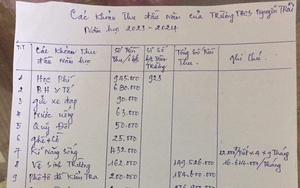 Các khoản thu đầu năm của Trường THCS Nguyễn Trãi
Năm học 2023 - 2024
T.T Các khoản thu đầu năm học Số tiền thu/1hs Số hs Tổng số tiền thu Ghi chú
1 Học Phí 945.000 923
2 BH Y Tế 680.000
3 gửi xe đạp 90.000
4 nước uống 63.000
5 Quỹ Đội 50.000
6 ghế 25.000
7 Kĩ Năng Sống 432.000
8 Vệ Sinh Trường 162.000 149.526.000 16.614.000/tháng
9 đề Kiểm Tra 200.000 184.600.000